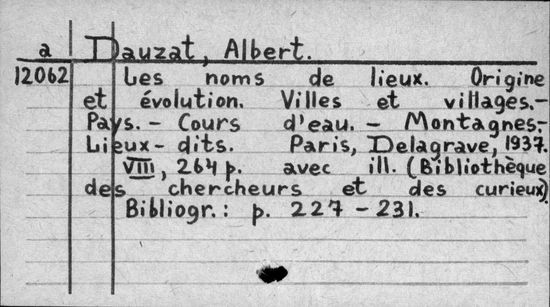 a Dauzat, Albert.
12062 Les noms de lieux. Origine
et évolution. Villes et villages.-
Pays. - Cours d'eau. - Montagnes.-
Lieux-dits. Paris, Delagrave, 1937.
VIII, 264 p. avec ill. (Bibliothèque
des chercheurs et des curieux)
Bibliogr.: p. 227-231.